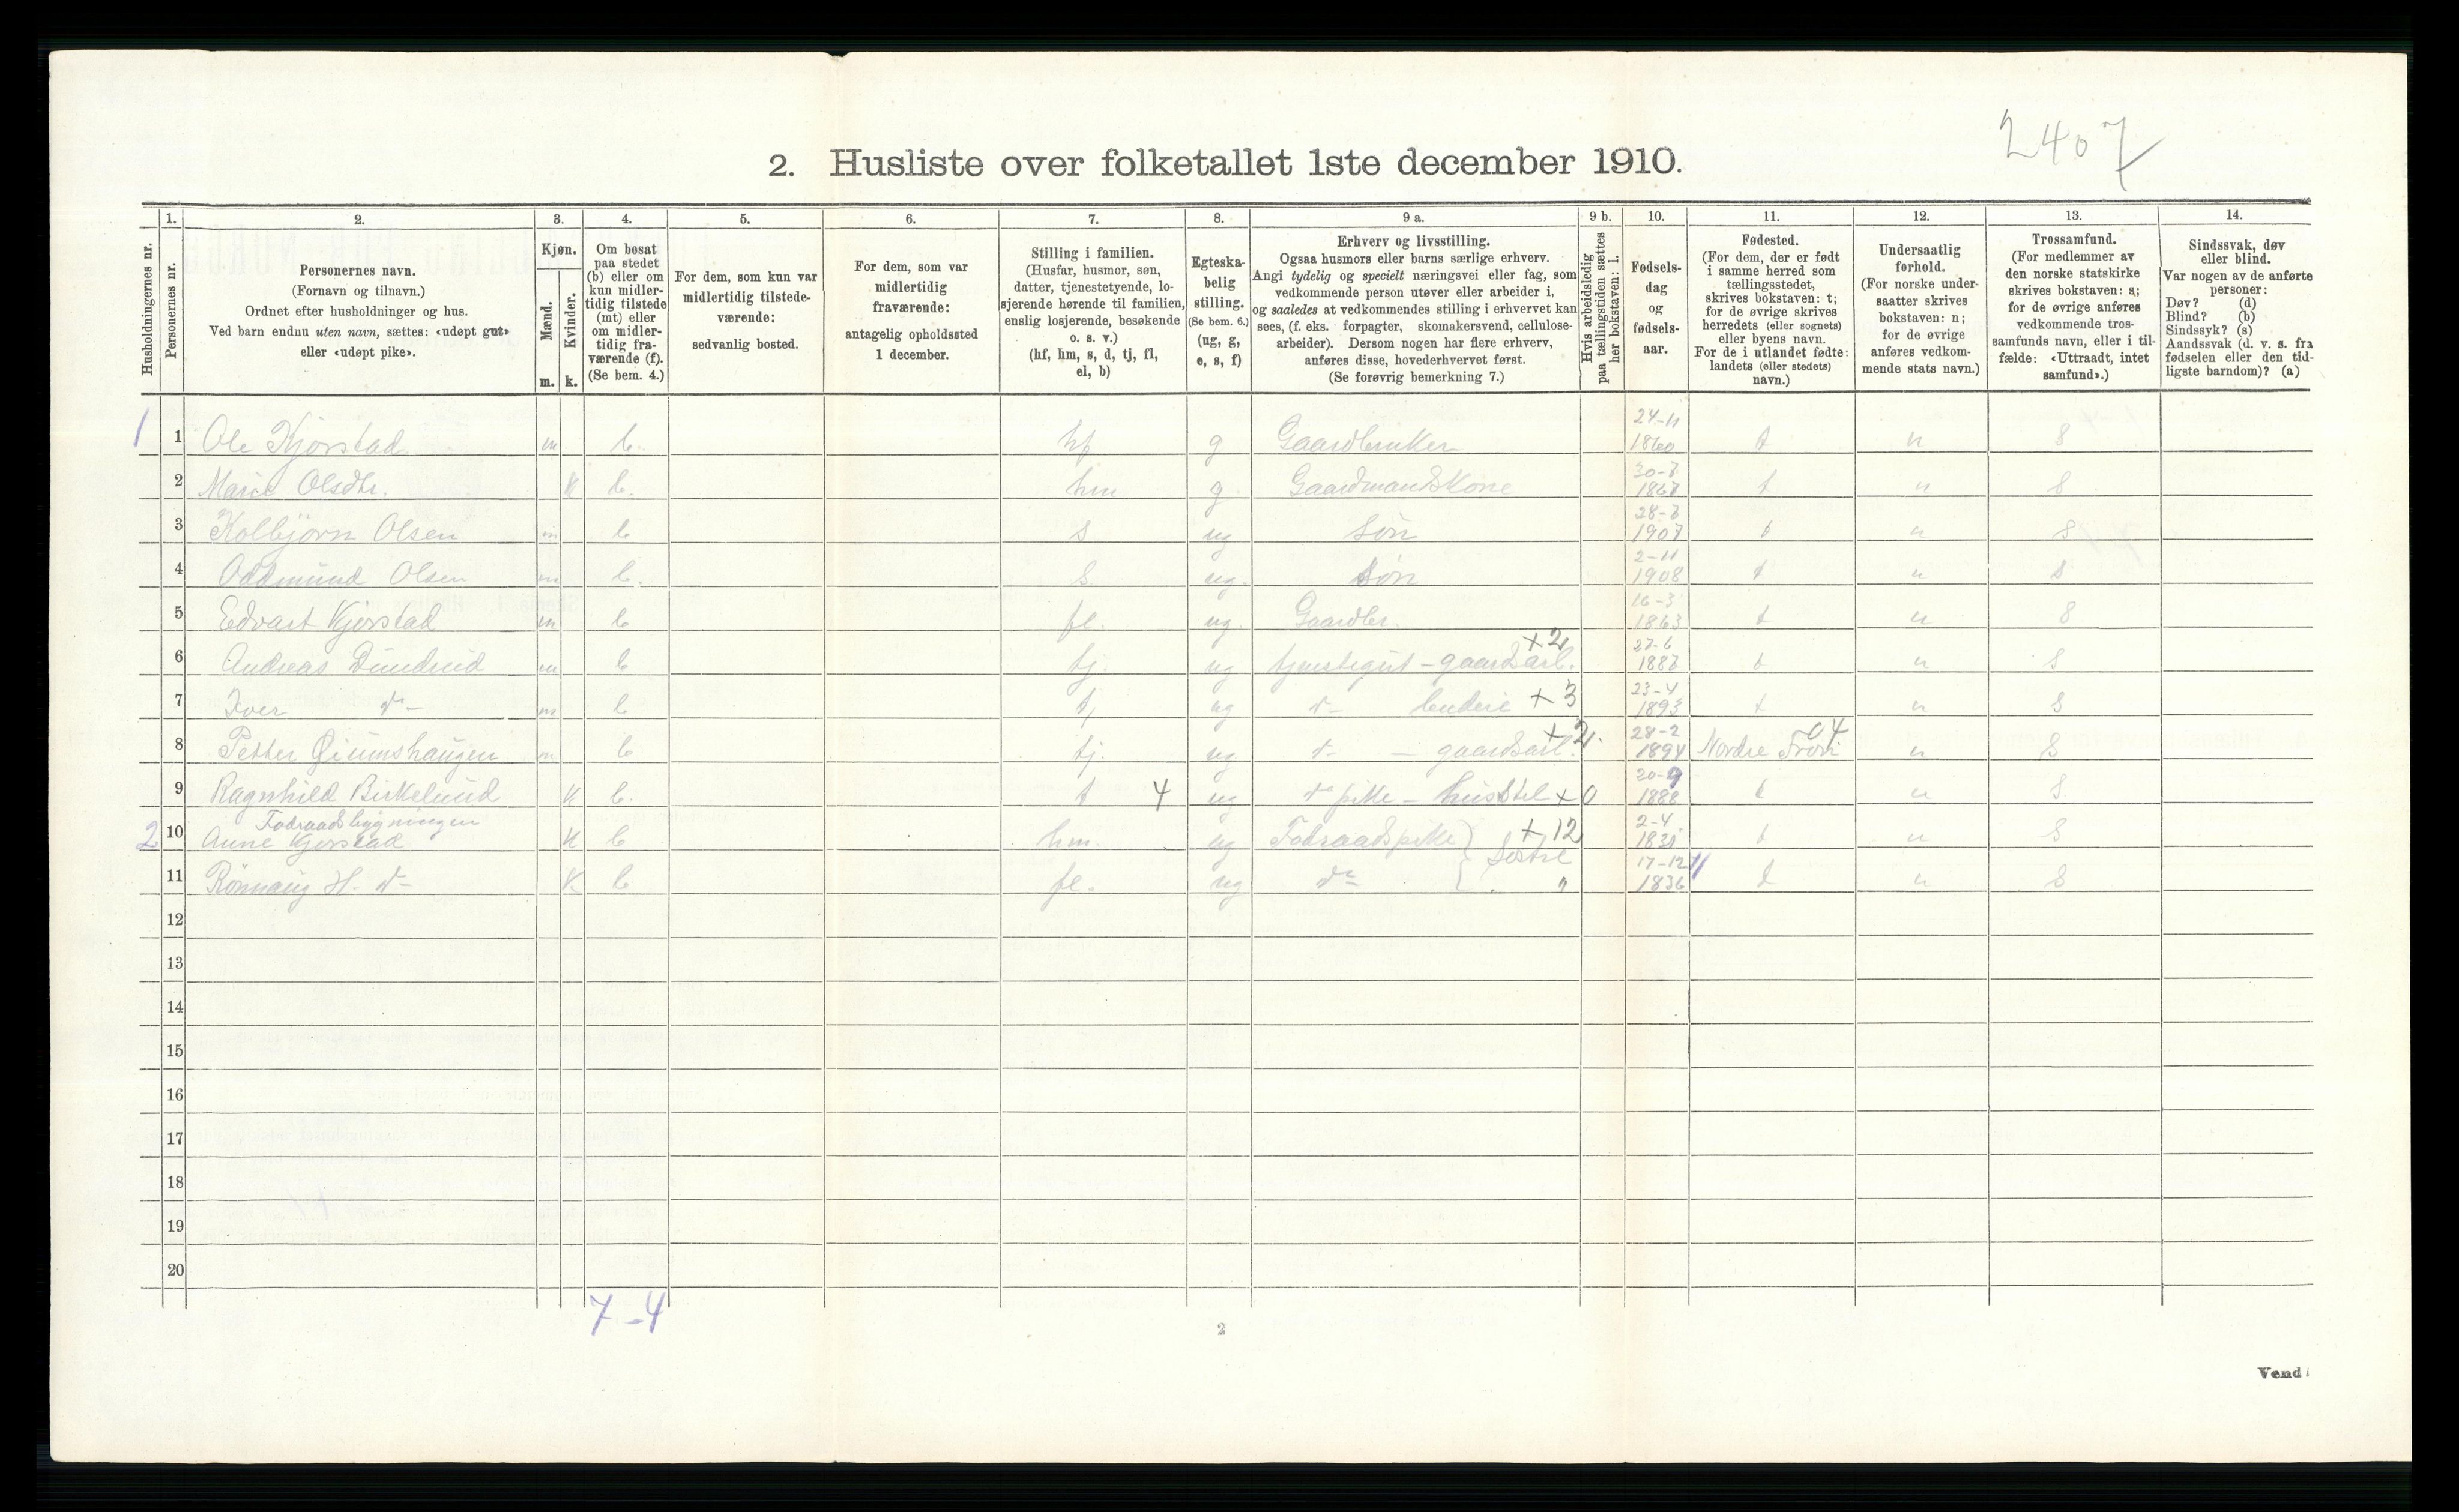 2407
2. Husliste over folketallet 1ste december 1910.
Husholdningernes nr.
1. Personernes nr.
2. Personernes navn. (Fornavn og tilnavn.) Ordnet efter husholdninger og hus. Ved barn endnu uten navn, sættes: «udøpt gut» eller «udøpt pike».
3. Kjøn. Mænd. m. Kvinder. k.
4. Om bosat paa stedet (b) eller om kun midlertidig tilstede (mt) eller om midlertidig fraværende (f). (Se bem. 4.)
5. For dem, som kun var midlertidig tilstedeværende: sedvanlig bosted.
6. For dem, som var midlertidig fraværende: antagelig opholdssted 1 december.
7. Stilling i familien. (Husfar, husmor, søn, datter, tjenestetyende, losjerende hørende til familien, enslig losjerende, besøkende o. s. v.) (hf, hm, s, d, tj, fl, el, b)
8. Egteskabelig stilling. (Se bem. 6.) (ug, g, e, s, f)
9 a. Erhverv og livsstilling. Ogsaa husmors eller barns særlige erhverv. Angi tydelig og specielt næringsvei eller fag, som vedkommende person utøver eller arbeider i, og saaledes at vedkommendes stilling i erhvervet kan sees, (f. eks. forpagter, skomakersvend, cellulosearbeider). Dersom nogen har flere erhverv, anføres disse, hovederhvervet først. (Se forøvrig bemerkning 7.)
9 b. Hvis arbeidsledig paa tællingstiden sættes her bokstaven: l.
10. Fødselsdag og fødselsaar.
11. Fødested. (For dem, der er født i samme herred som tællingsstedet, skrives bokstaven: t; for de øvrige skrives herredets (eller sognets) eller byens navn. For de i utlandet fødte: landets (eller stedets) navn.)
12. Undersaatlig forhold. (For norske undersaatter skrives bokstaven: n; for de øvrige anføres vedkommende stats navn.)
13. Trossamfund. (For medlemmer av den norske statskirke skrives bokstaven: s; for de øvrige anføres vedkommende trossamfunds navn, eller i tilfælde: «Uttraadt, intet samfund».)
14. Sindssvak, døv eller blind. Var nogen av de anførte personer: Døv? (d) Blind? (b) Sindssyk? (s) Aandssvak (d. v. s. fra fødselen eller den tidligste barndom)? (a)
1 1 Ole Kjørstad m b. hf g Gaardbruker 24-11 1860 t n s
2 Marie Olsdtr. k b. hm g Gaardmandskone 30-7 1867 t n s
3 Kolbjørn Olsen m b s ug Søn 28-7 1907 t n s
4 Oddmund Olsen m b. s ug. Søn 2-11 1908 t n s
5 Edvart Kjørstad m b fl. ug. Gaardbr. 16-3 1863 t n s
6 Andreas m b tj. ug tjenestegut - gaardsarb. +2 27-6 1887 t n s
7 Iver do m b tj ug do +3 23-4 1893 t n s
8 Petter m b tj. ug do - gaardsarb. +2. 28-2 1894 Nordre Fron 04 n s
9 Ragnhild Birkelund k b. t 4 ug do pike - husstel +0 20-9 1888 t n s
Fodraadsbygningen
2 10 Anne Kjørstad k b hm. ug Fodraadspike } Søstre +12 2-4 t n s
11 Rønnaug H. do k b fl. ug do } " 17-12 1836 t n s
12
13
14
15
16
17
18
19
20
7-4
2
Vend!